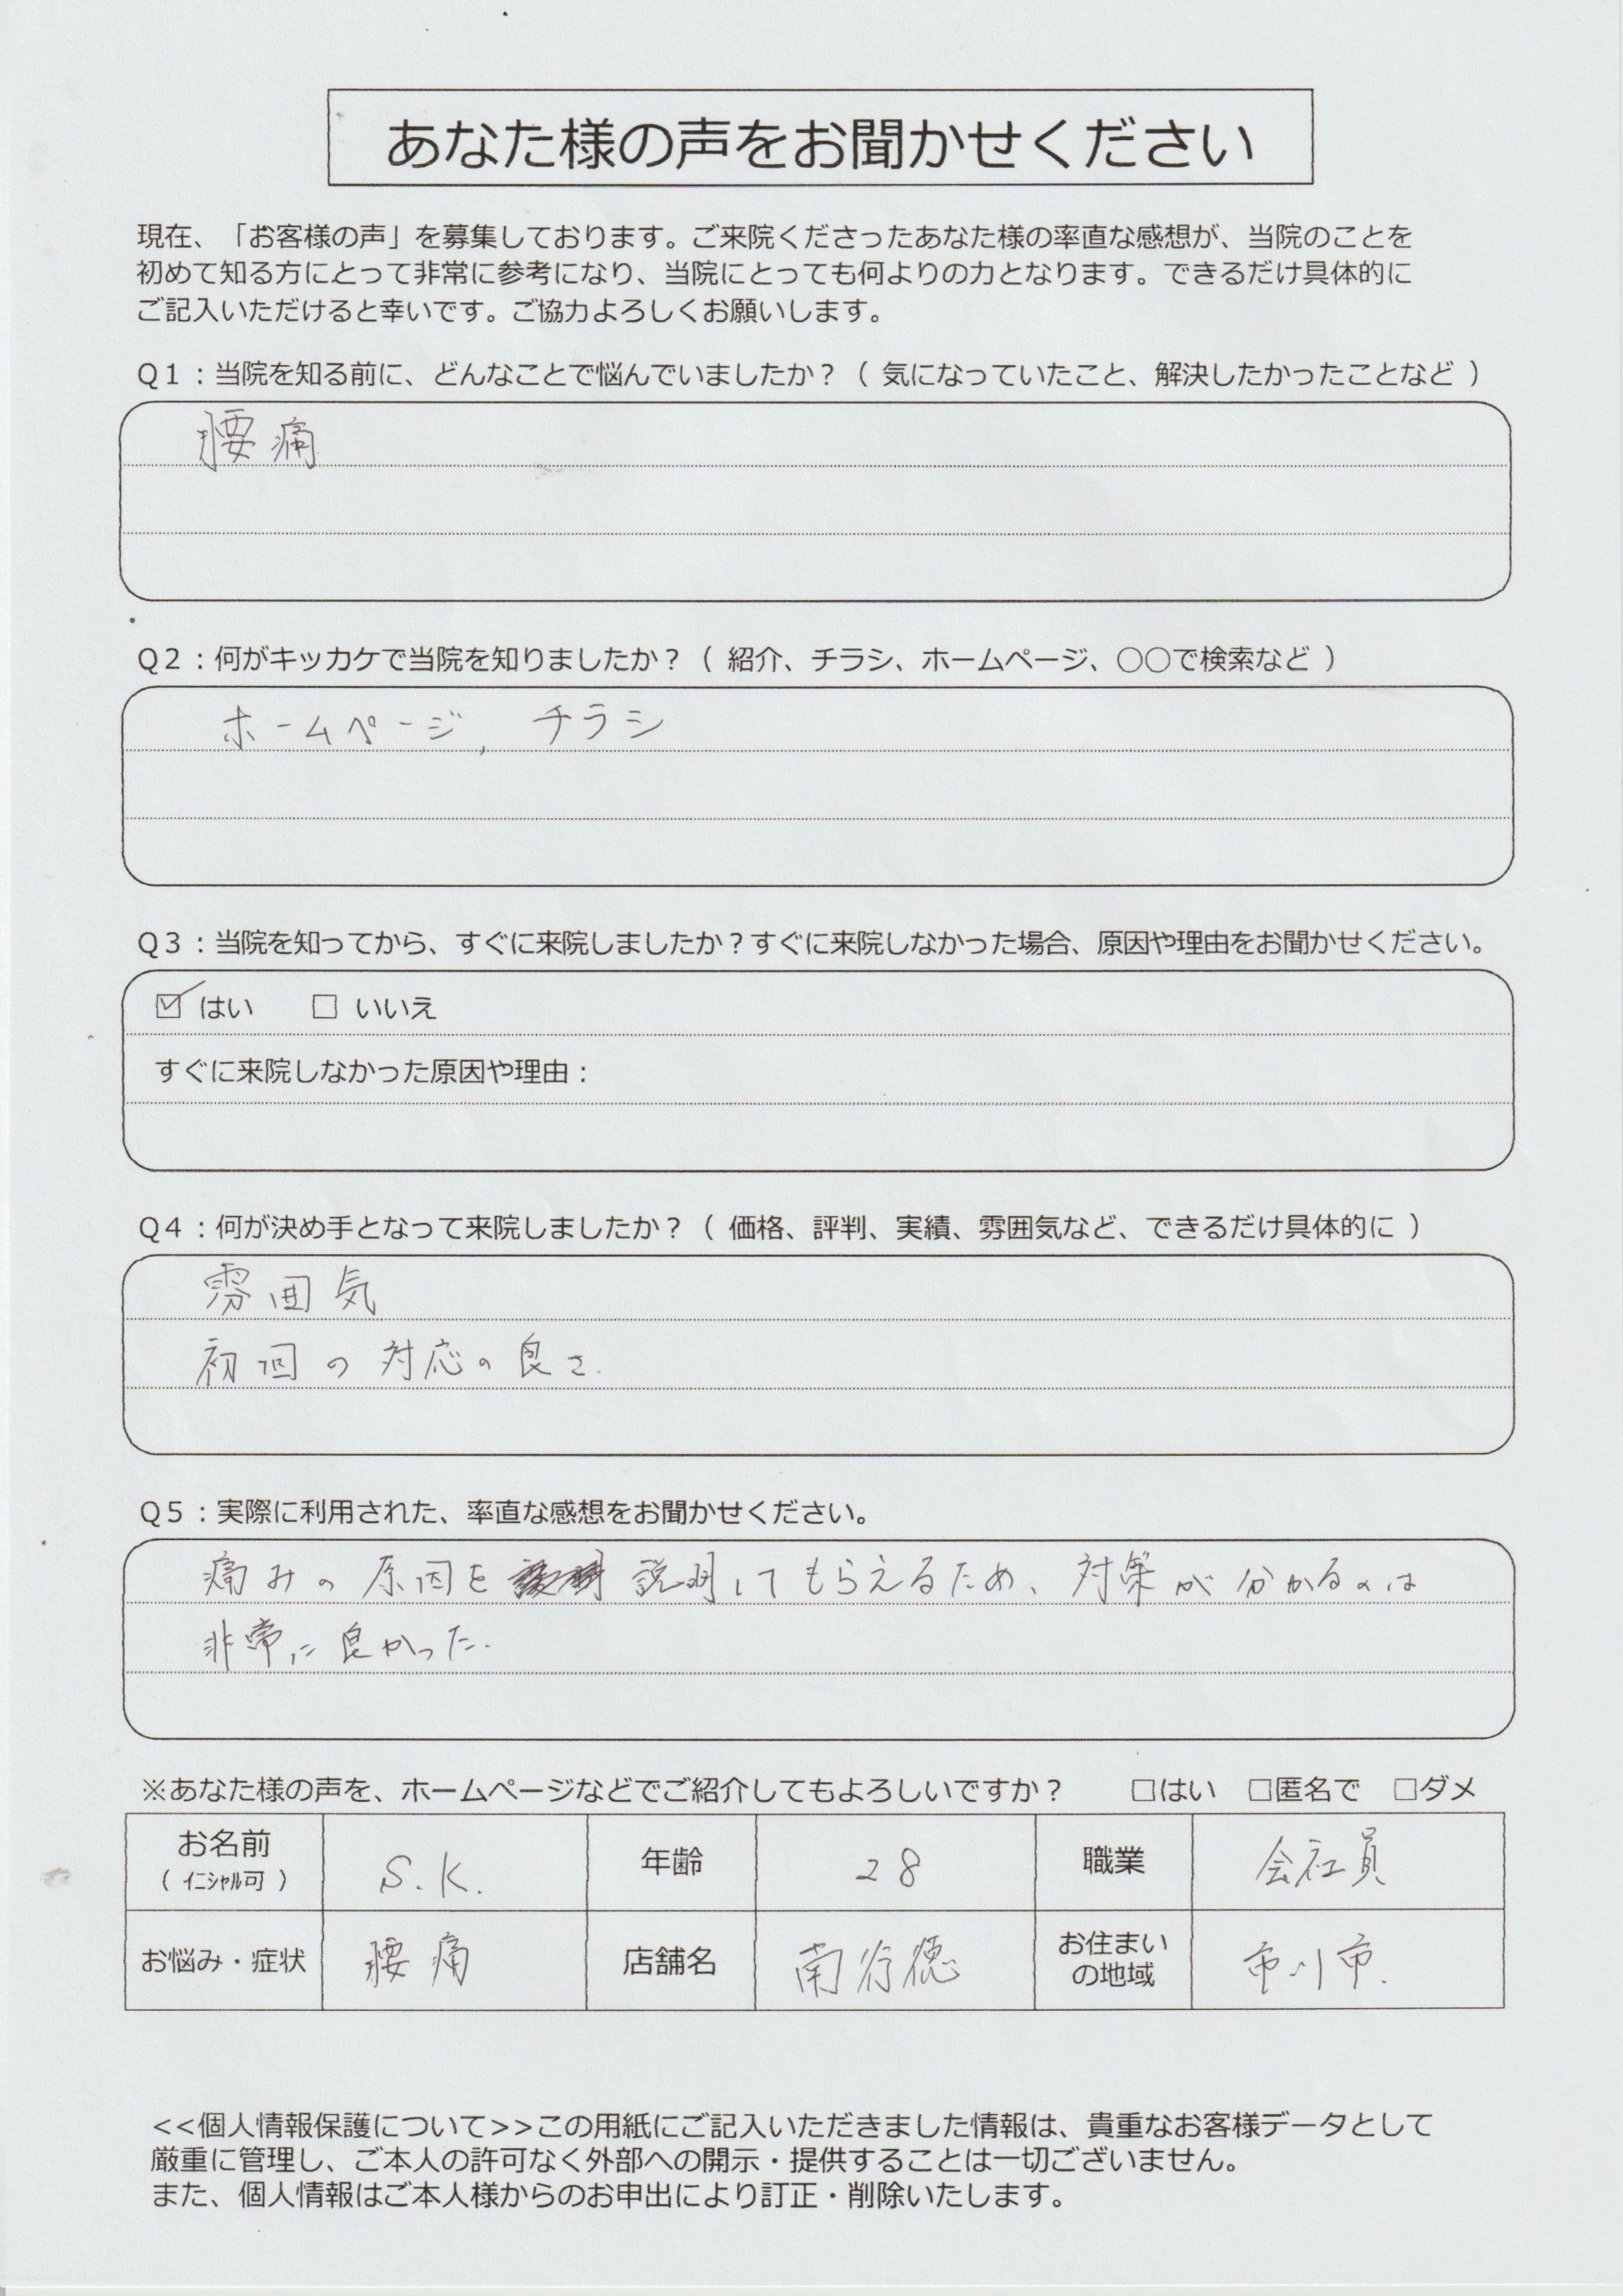 あなた様の声をお聞かせください
現在、「お客様の声」を募集しております。ご来院くださったあなた様の率直な感想が、当院のことを
初めて知る方にとって非常に参考になり、当院にとっても何よりの力となります。できるだけ具体的に
ご記入いただけると幸いです。ご協力よろしくお願いします。
Q1：当院を知る前に、どんなことで悩んでいましたか？（ 気になっていたこと、解決したかったことなど ）
腰痛
Q2：何がキッカケで当院を知りましたか？（ 紹介、チラシ、ホームページ、○○で検索など ）
ホームページ, チラシ
Q3：当院を知ってから、すぐに来院しましたか？すぐに来院しなかった場合、原因や理由をお聞かせください。
☑ はい □ いいえ
すぐに来院しなかった原因や理由：
Q4：何が決め手となって来院しましたか？（ 価格、評判、実績、雰囲気など、できるだけ具体的に ）
雰囲気
初回の対応の良さ.
Q5：実際に利用された、率直な感想をお聞かせください。
痛みの原因を 説明してもらえるため、対策が分かるのは
非常に良かった.
※あなた様の声を、ホームページなどでご紹介してもよろしいですか？ □はい □匿名で □ダメ
お名前（ ｲﾆｼｬﾙ可 ） S.K. 年齢 28 職業 会社員
お悩み・症状 腰痛 店舗名 南行徳 お住まいの地域 市川市.
<<個人情報保護について>>この用紙にご記入いただきました情報は、貴重なお客様データとして
厳重に管理し、ご本人の許可なく外部への開示・提供することは一切ございません。
また、個人情報はご本人様からのお申出により訂正・削除いたします。